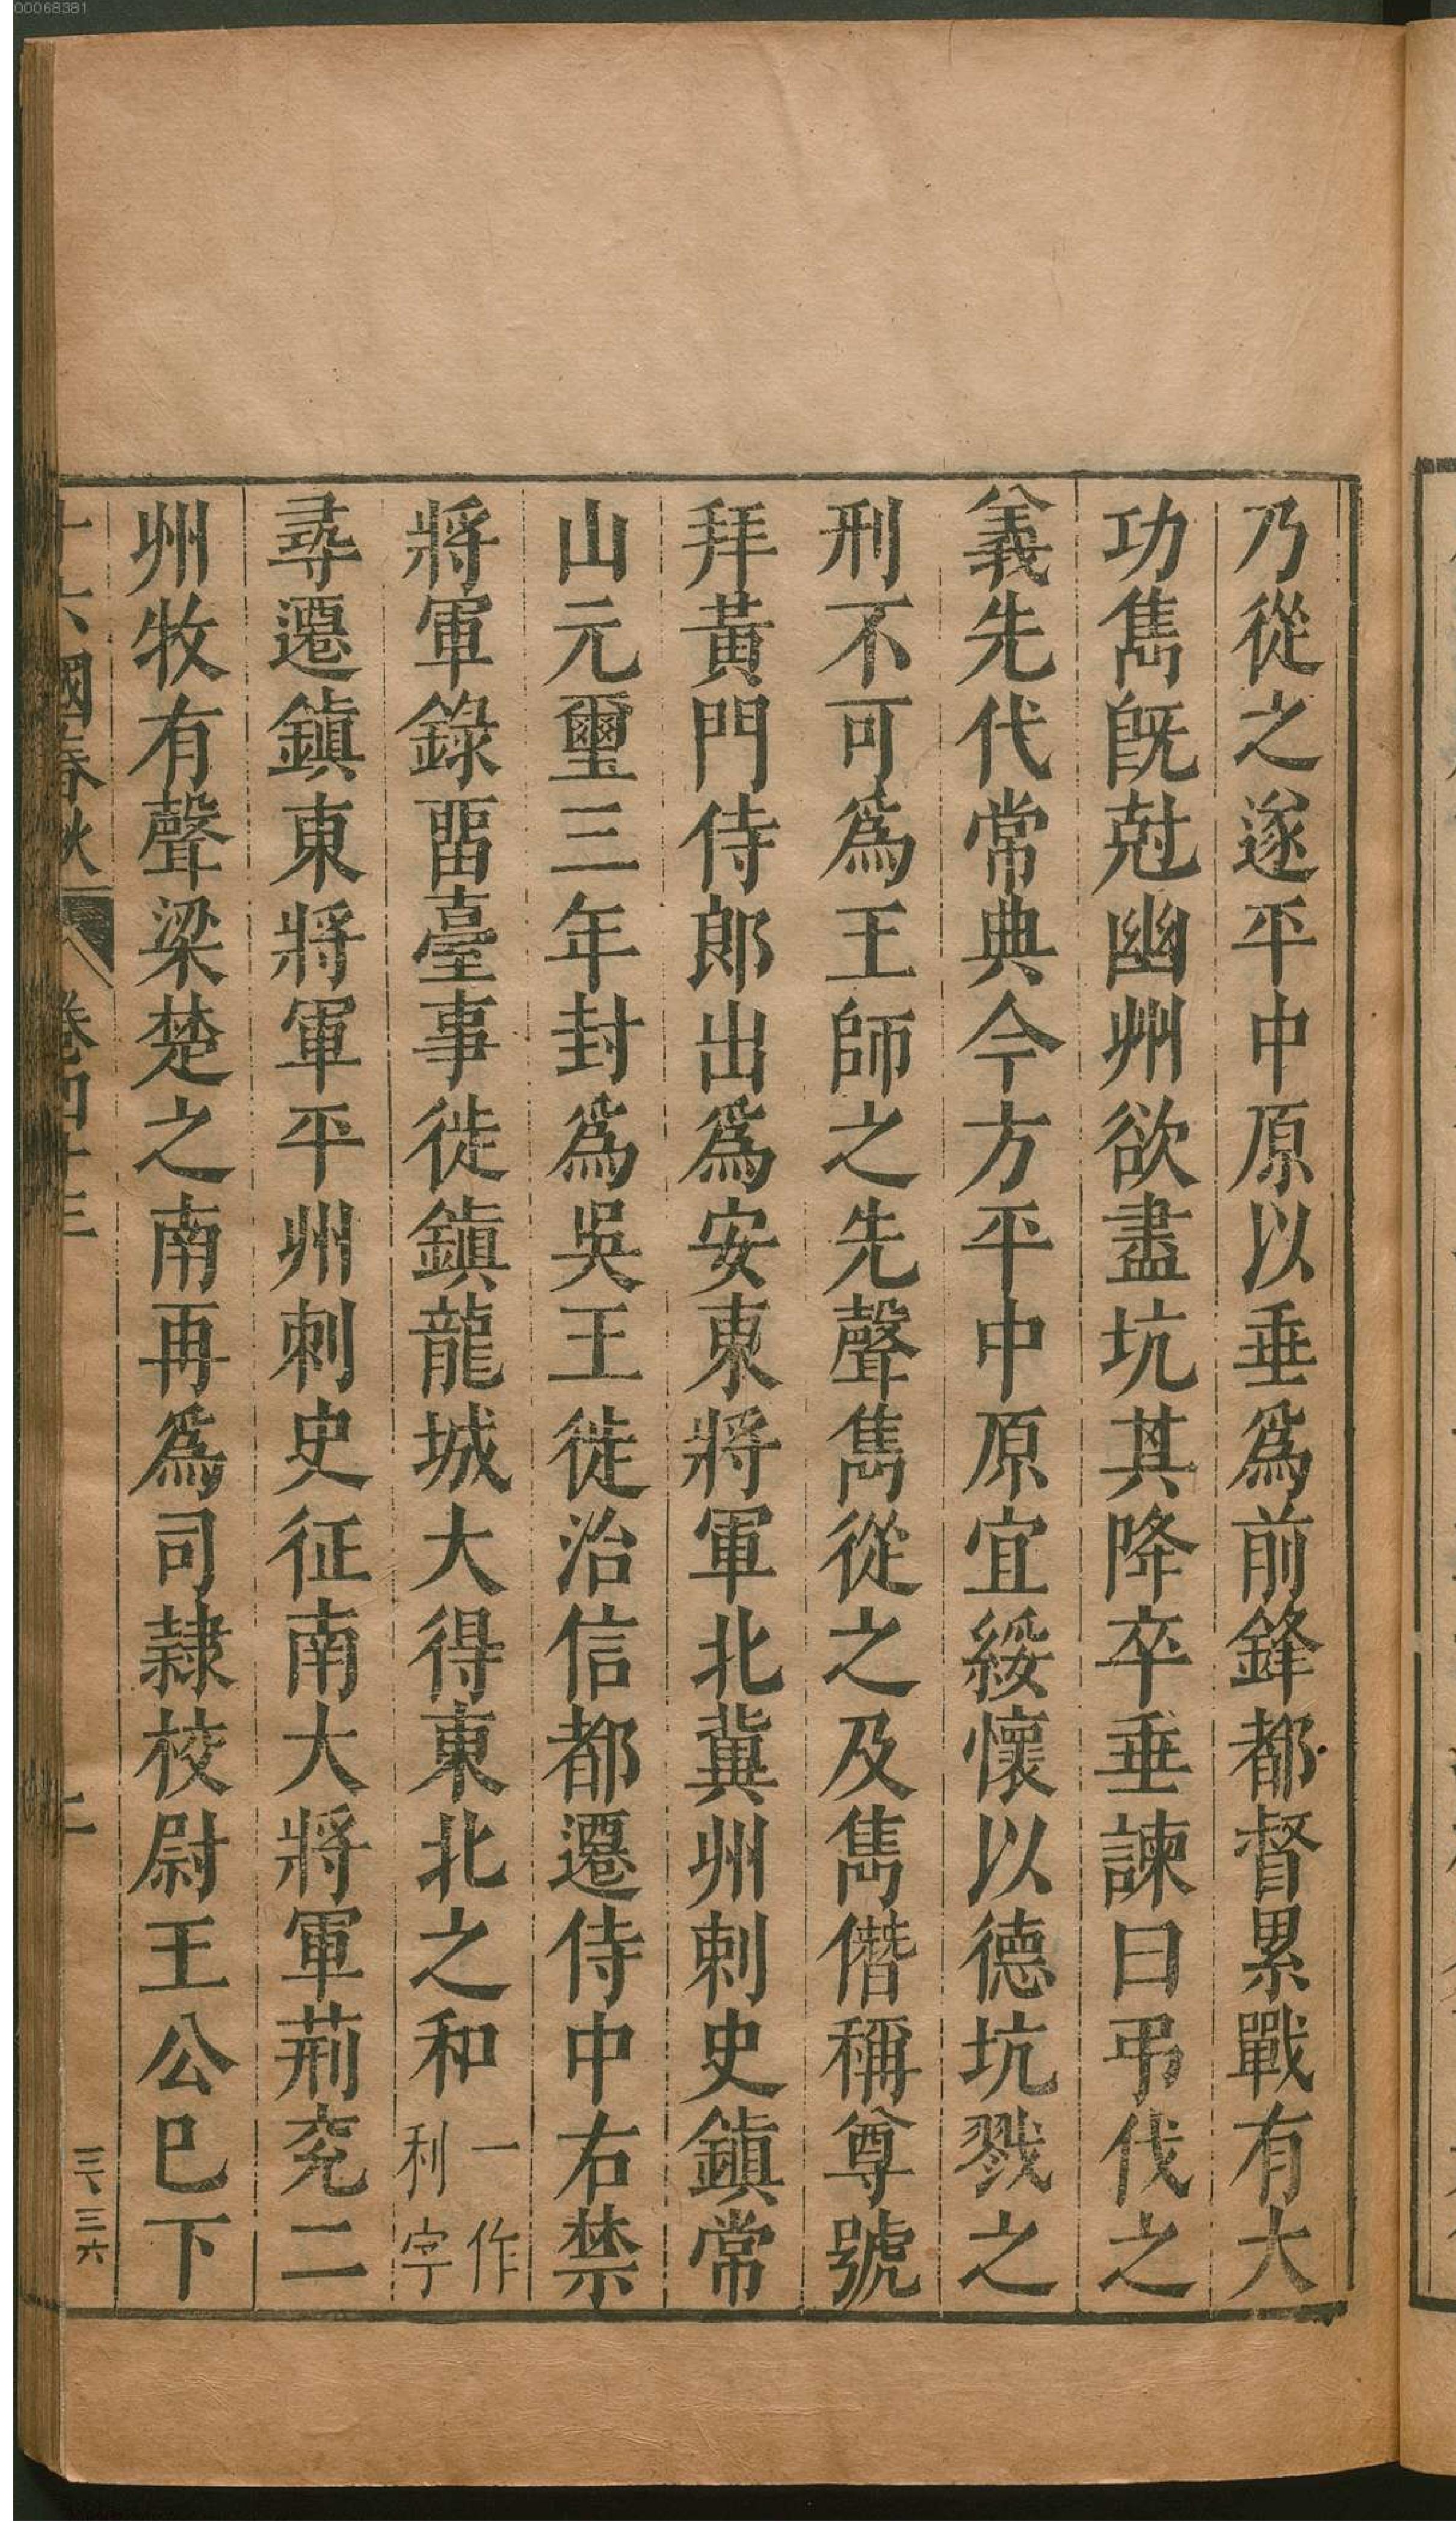 00068381
乃從之遂平中原以垂爲前鋒都督累戰有大
功雋旣尅幽州欲盡坑其降卒垂諫曰弔伐之
義先代常典今方平中原宜綏懷以德坑戮之
刑不可爲王師之先聲雋從之及雋僭稱尊號
拜黃門侍郎出爲安東將軍北冀州刺史鎭常
山元璽三年封爲吳王徙治信都遷侍中右禁
將軍錄畱臺事徙鎭龍城大得東北之和一作利字
尋遷鎭東將軍平州刺史征南大將軍荊兖二
州牧有聲梁楚之南再爲司隸校尉王公巳下
十六國春秋 卷四十三 二 三、三六